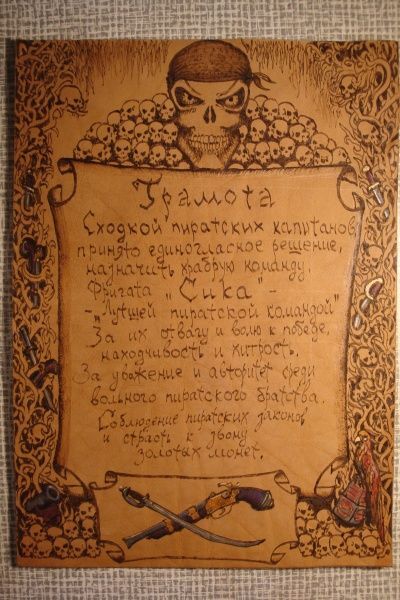 Грамота
Сходкой пиратских капитанов
принято единогласное решение,
назначить храбрую команду.
Фригата „Сика" -
- „Лутшей пиратской командой"
За их отвагу и волю к победе,
находчивость и хитрость.
За уважение и авторитет среди
вольного пиратского братства.
Соблюдение пиратских законов
и страсть к звону
золотых монет.